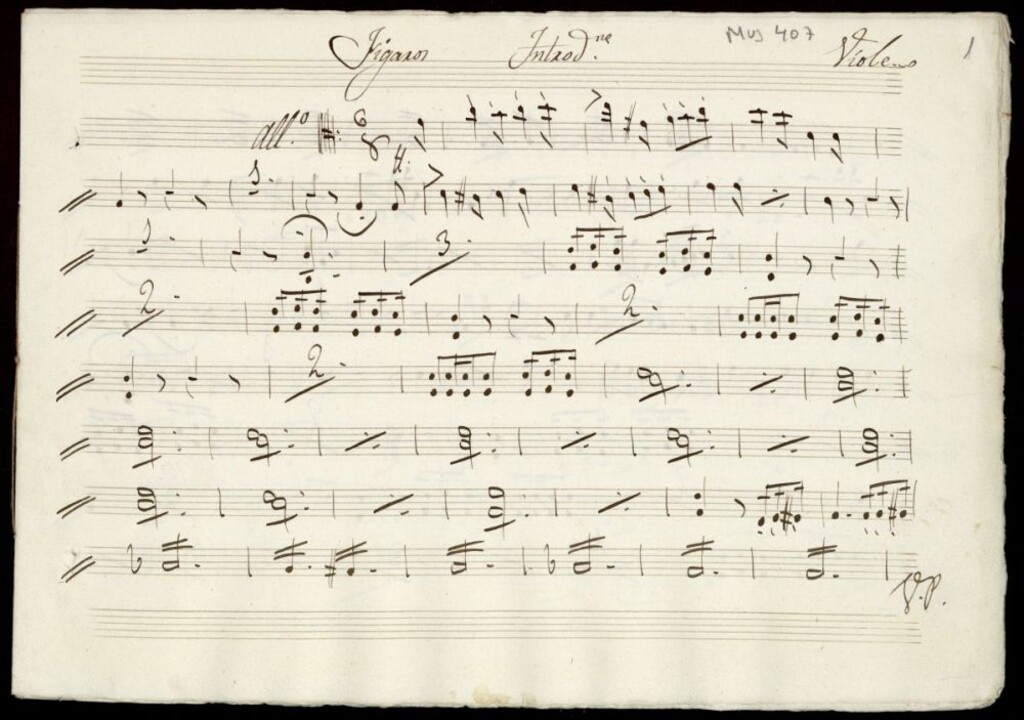 Figaro Introd.ne Mus 407 Viole 1
All.o 6
8
1.
1. 3.
2. 2.
2.
V.P.